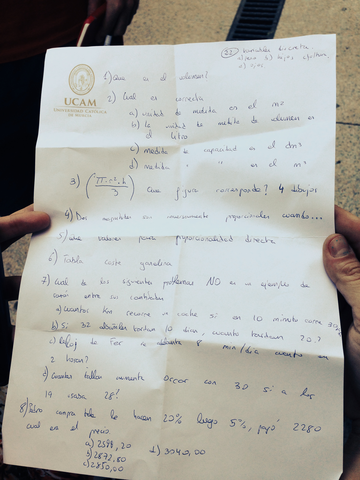 22) Variable discreta
UCAM
UNIVERSIDAD CATÓLICA
DE MURCIA
1) Que es el volumen?
2) Cual es correcta
a) unidad de medida es el m³
b) la unidad de medida de volumen es
el litro
c) medida de capacidad es el dm³
d) medida " " es el m³
3) (π·r²·h / 3) Que figura corresponde? 4 dibujos
4) Dos magnitudes son inversamente proporcionales cuando...
5) Que valores para proporcionalidad directa
6) Tabla coste gasolina
7) Cual de los siguientes problemas NO es un ejemplo de
entre sus cantidades
a) Cuantos Km recorre un coche si en 10 minutos
b) Si 32 albañiles tardan 10 días, cuanto tardaran 20?
c) Reloj de se 8 min/dia cuanto en
2 horas?
d) Cuantas tallas aumenta Oscar con 30 si a los
19 usaba 28?
8) Pedro compra tele le hacen 20% luego 5%, pagó 2280
cual es el precio
a) 2598,20
b) 2872,80
c) 2850,00
d) 3040,00